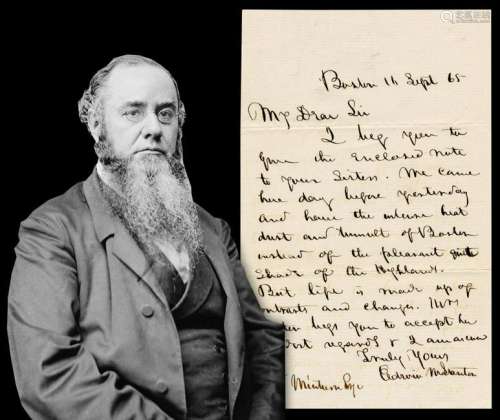 Boston 14 Sept 65
My Dear Sir
I beg you to
give the Enclosed note
to your Sisters. We came
here day before yesterday
and have the intense heat
dust and tumult of Boston
instead of the pleasant
Shade of the Highlands.
But life is made up of
contrasts and changes. Mrs
begs you to accept her
regards & I am
Truly Yours
Edwin M Stanton